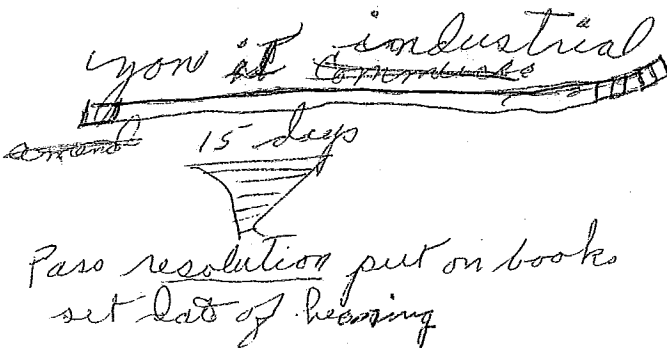 zon it industrial
amend 15 days
Pass resolution put on books
set date of hearing